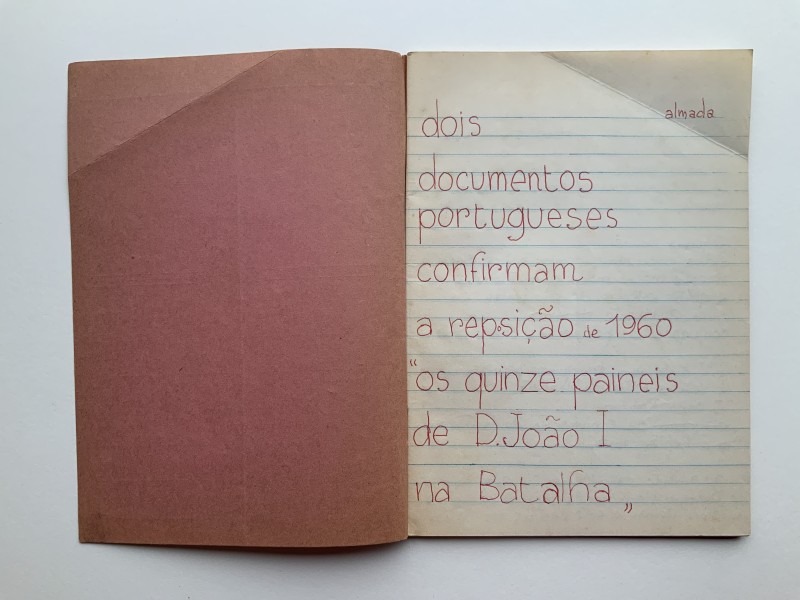 almada
dois
documentos
portugueses
confirmam
a reposição de 1960
“os quinze paineis
de D. João I
na Batalha„